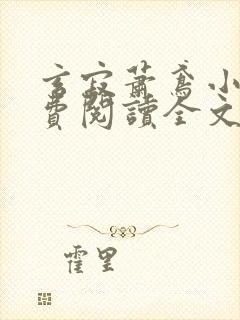 玄寂蕭鳶小
費閱讀全文
霍里